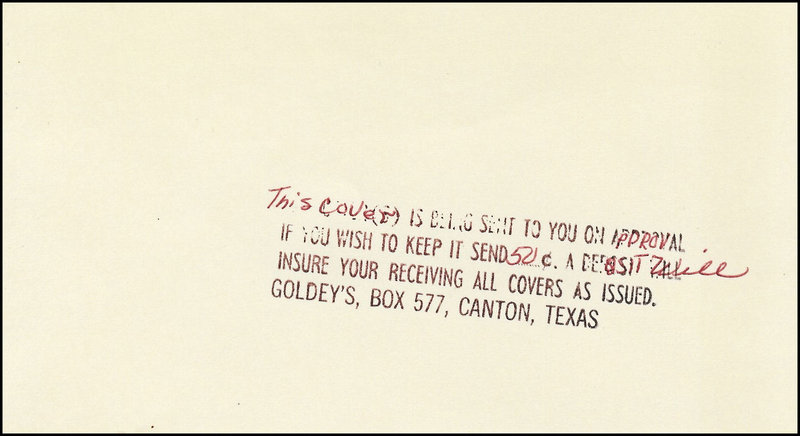 This cover IS BEING SENT TO YOU ON APPROVAL
IF YOU WISH TO KEEP IT SEND 52 ¢. A DEPOSIT Will
INSURE YOUR RECEIVING ALL COVERS AS ISSUED.
GOLDEY'S, BOX 577, CANTON, TEXAS